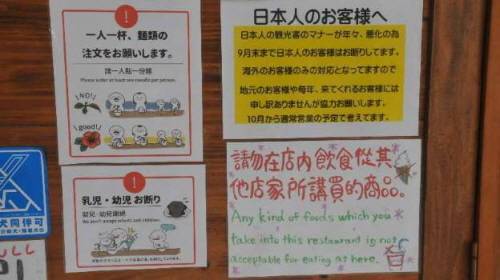 一人一杯、麺類の
注文をお願いします。
請一人點一份麵
Please order at least one noodle per person.
NO!
good!
乳児・幼児 お断り
嬰兒・幼兒謝絕
We don't accept infants and children.
犬同伴可
PULL
日本人のお客様へ
日本人の観光客のマナーが年々、悪化の為
9月末まで日本人のお客様はお断りしてます。
海外のお客様のみの対応となってますので
地元のお客様や毎年、来てくれるお客様には
申し訳ありませんが協力お願いします。
10月から通常営業の予定で考えてます。
請勿在店内飲食從其
他店家所講買的商品。
Any kind of foods which you
take into this restaurant is not
acceptable for eating at here.